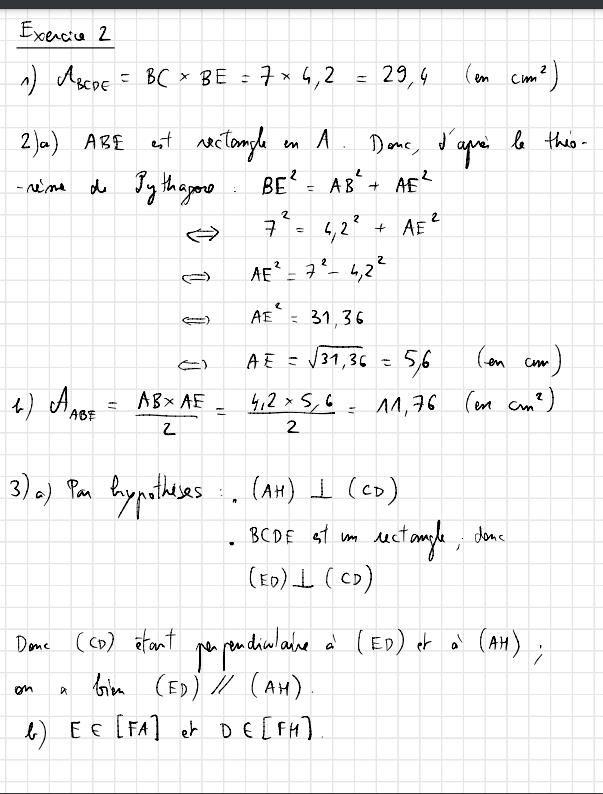 Exercice 2
1) A_BCDE = BC × BE = 7 × 4,2 = 29,4 (en cm²)
2)a) ABE est rectangle en A. Donc, d'après le théo-
-rème de Pythagore : BE² = AB² + AE²
⟺ 7² = 4,2² + AE²
⟺ AE² = 7² - 4,2²
⟺ AE² = 31,36
⟺ AE = √31,36 = 5,6 (en cm)
b) A_ABE = AB × AE / 2 = 4,2 × 5,6 / 2 = 11,76 (en cm²)
3)a) Par hypothèses : . (AH) ⊥ (CD)
. BCDE est un rectangle, donc
(ED) ⊥ (CD)
Donc (CD) étant perpendiculaire à (ED) et à (AH) ;
on a bien (ED) // (AH).
b) E ∈ [FA] et D ∈ [FH].